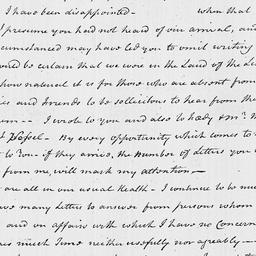 I have been disappointed – when that
I presume you had not heard of our arrival, and
cumstanced may have led you to omit writing
ould be certain that we were in the Land of the Li
how natural it is for those who are absent from
ies and friends to be sollicitous to hear from the
m – I wrote to you and also to Lady & Mr.
t – By every opportunity which comes to
to You – if they arrive, the Number of Letters you
from me, will mark my attention –
are all in our usual Health – I continue to be mu
ve many Letters to answer from persons whom
and on affairs with which I have no Concern
es much Time neither usefully nor agreably –